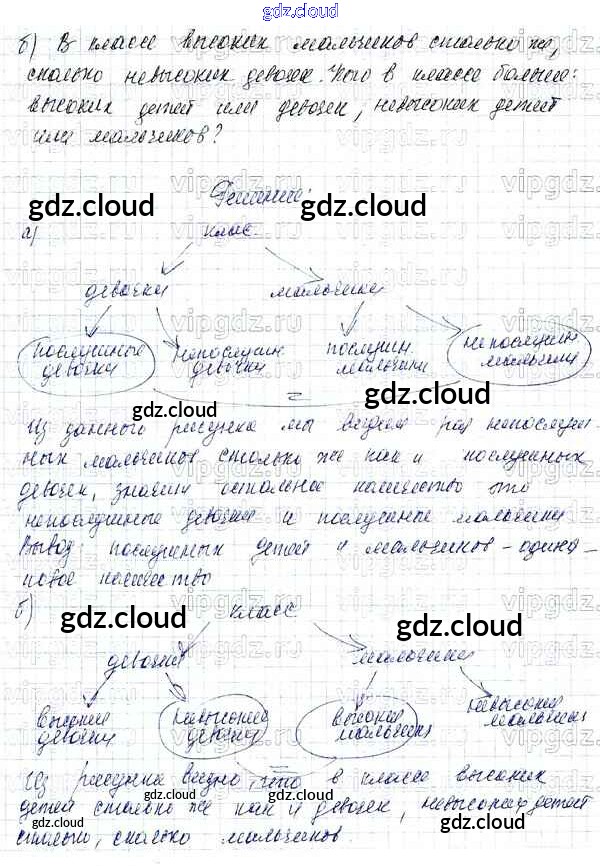 gdz.cloud
б) В классе высоких мальчиков столько же,
сколько невысоких девочек. Кого в классе больше:
высоких детей или девочек, невысоких детей
или мальчиков?
Решение:
gdz.cloud gdz.cloud
а) класс
девочки мальчики
послушные девочки непослушн. девочки послушн. мальчики непослушн. мальчики
=
gdz.cloud gdz.cloud
Из данного рисунка мы видим раз непослуш-
ных мальчиков столько же как и послушных
девочек, значит остальное количество это
непослушные девочки и послушные мальчики
Вывод: послушных детей и мальчиков - одина-
ковое количество
б) класс
gdz.cloud gdz.cloud
девочки мальчики
высокие девочки невысокие девочки высокие мальчики невысокие мальчики
=
Из рисунка видно, что в классе высоких
детей столько же как и девочек, невысоких детей
столько, сколько мальчиков.
gdz.cloud gdz.cloud gdz.cloud